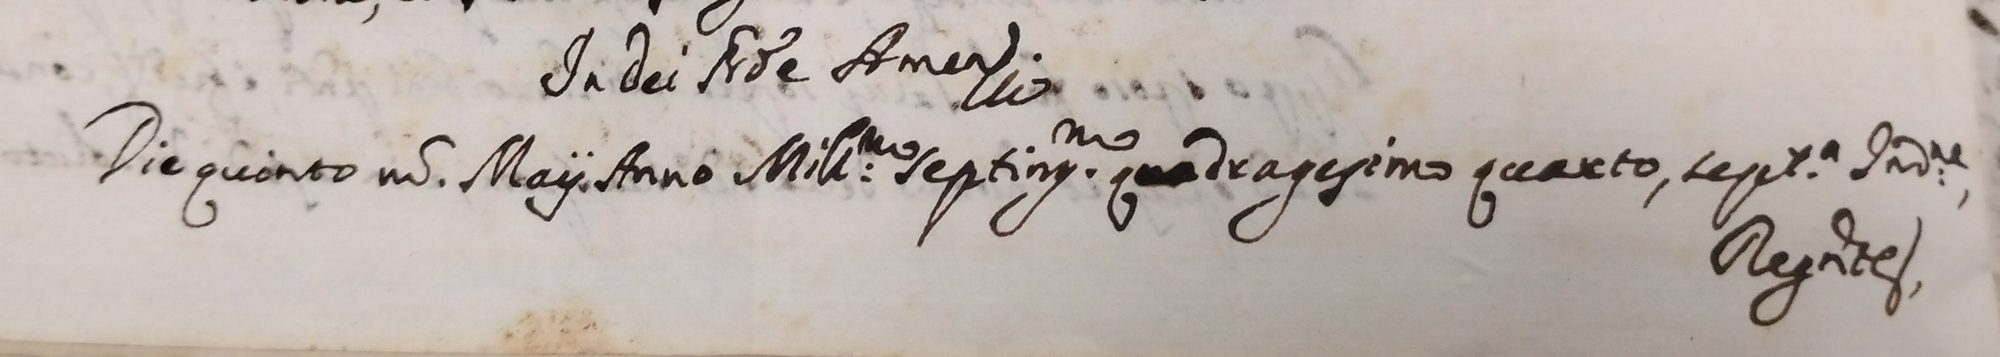 In Dei Nõe Amen
Die quinto m̃. Maÿ. Anno Mill:mo septing.mo quadragesimo quarto, sept.a Ind:ne,
Regñtes,